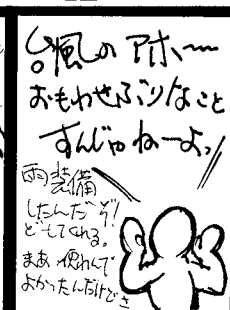 台風のアホ〜
おもわせぶりなこと
すんじゃねーよっ
雨装備
したんだぞ!
どーしてくれる。
まあ、使わんで
よかったんだけどさ